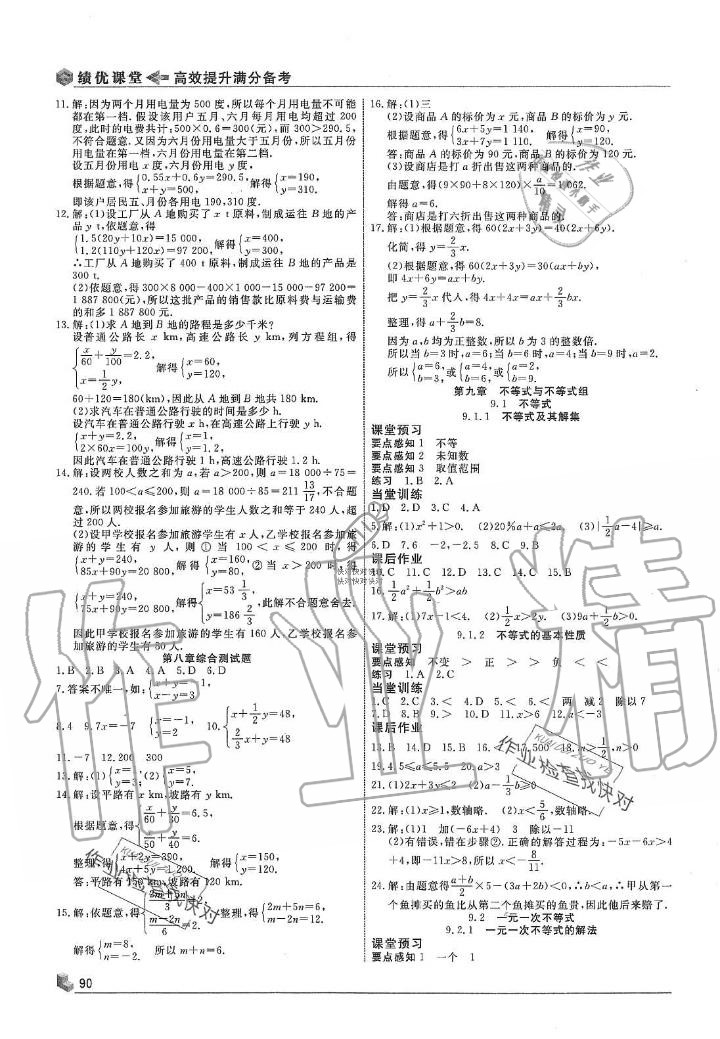 绩优课堂 高效提升满分备考
11.解:因为两个月用电量为 500 度,所以每个月用电量不可能
都在第一档. 假设该用户五月、六月每月用电均超过 200
度,此时的电费共计:500×0.6=300(元),而 300>290.5,
不符合题意.又因为六月份用电量大于五月份,所以五月份
用电量在第一档,六月份用电量在第二档.
设五月份用电 x 度,六月份用电 y 度,
根据题意,得{0.55x+0.6y=290.5, x+y=500. 解得{x=190, y=310.
即该户居民五、六月份各用电 190,310 度.
12.解:(1)设工厂从 A 地购买了 x t 原料,制成运往 B 地的产
品 y t,依题意,得
{1.5(20y+10x)=15 000, 1.2(110y+120x)=97 200, 解得{x=400, y=300.
∴工厂从 A 地购买了 400 t 原料,制成运往 B 地的产品是
300 t.
(2)依题意,得 300×8 000-400×1 000-15 000-97 200=
1 887 800(元),所以这批产品的销售款比原料费与运输费
的和多 1 887 800 元.
13.解:(1)求 A 地到 B 地的路程是多少千米?
设普通公路长 x km,高速公路长 y km,列方程组,得
{x/60+y/100=2.2, x=1/2 y, 解得{x=60, y=120,
60+120=180(km),因此从 A 地到 B 地共 180 km.
(2)求汽车在普通公路行驶的时间是多少 h.
设汽车在普通公路行驶 x h,在高速公路上行驶 y h.
{x+y=2.2, 2×60x=100y, 解得{x=1, y=1.2.
因此汽车在普通公路行驶 1 h,高速公路行驶 1.2 h.
14.解:设两校人数之和为 a,若 a>200,则 a=18 000÷75=
240.若 100<a≤200,则 a=18 000÷85=211 13/17,不合题
意,所以两校报名参加旅游的学生人数之和等于 240 人,超
过 200 人.
(2)设甲学校报名参加旅游的学生有 x 人,乙学校报名参加旅
游的学生有 y 人,则①当 100<x≤200 时,得
{x+y=240, 85x+90y=20 800, 解得{x=160, y=80, ②当 x>200 时,得
{x+y=240, 75x+90y=20 800, 解得{x=53 1/3, y=186 2/3, 此解不合题意舍去.
因此甲学校报名参加旅游的学生有 160 人,乙学校报名参加
旅游的学生有 80 人.
第八章综合测试题
1.B 2.B 3.A 4.A 5.D 6.D
7.答案不唯一,如:{x+y=-1, x-y=3
8.4 9.7x=-7 {x=-1, y=2 10.{x+1/2 y=48, 2/3 x+y=48
11.-7 12.200 300
13.解:(1){x=5, y=3; (2){x=5, y=7.
14.解:设平路有 x km,坡路有 y km.
根据题意,得{x/60+y/30=6.5, x/50+y/40=6.
整理,得{x+2y=390, 4x+5y=1 200. 解得{x=150, y=120.
答:平路有 150 km,坡路有 120 km.
15.解:依题意,得 整理,得{2m+5n=6, m-2n=12.
解得{m=8, n=-2. 所以 m+n=6.
16.解:(1)三
(2)设商品 A 的标价为 x 元,商品 B 的标价为 y 元.
根据题意,得{6x+5y=1 140, 3x+7y=1 110. 解得{x=90, y=120.
答:商品 A 的标价为 90 元,商品 B 的标价为 120 元.
(3)设商店是打 a 折出售这两种商品的.
由题意,得(9×90+8×120)×a/10=1 062.
解得 a=6.
答:商店是打六折出售这两种商品的.
17.解:(1)根据题意,得 60(2x+3y)=40(2x+6y).
化简,得 y=2/3 x.
(2)根据题意,得 60(2x+3y)=30(ax+by),
即 4x+6y=ax+by.
把 y=2/3 x 代入,得 4x+4x=ax+2/3 bx.
整理,得 a+2/3 b=8.
因为 a,b 均为正整数,所以 b 为 3 的整数倍.
所以当 b=3 时,a=6;当 b=6 时,a=4;当 b=9 时,a=2.
所以{a=6, b=3,或{a=4, b=6,或{a=2, b=9.
第九章 不等式与不等式组
9.1 不等式
9.1.1 不等式及其解集
课堂预习
要点感知 1 不等
要点感知 2 未知数
要点感知 3 取值范围
练习 1.B 2.A
当堂训练
1.D 2.D 3.C 4.A
5.解:(1)x²+1>0. (2)20%a+a≤2a. (3)|1/2 a-4|≥a.
6.D 7.6 -2,-2.5 8.C 9.B
课后作业
10.C 11.C 12.D 13.C 14.C 15.B
16.1/2 a²+1/2 b²>ab
17.解:(1)7x-1<4. (2)1/2 x>2y. (3)9a+1/2 b>0.
9.1.2 不等式的基本性质
课堂预习
要点感知 不变 > 正 > > 负 < <
练习 1.A 2.C
当堂训练
1.C 2.C 3.< 4.D 5.< < 两 减 2 除以 7
7.D 8.B 9.D 10.D 11.x>6 12.a<-3
课后作业
13.B 14.D 15.B 16.< 17.500 18.m>1/2,n>0
19.4.5≤a≤5.5 20.a>3
21.(1)2x+3y≤2 (2)a-1/3 b≥0
22.解:(1)x≥1,数轴略. (2)x<5/6,数轴略.
23.解:(1)1 加(-6x+4) 3 除以-11
(2)有错误,错在步骤②.正确的解答过程为:-5x-6x>4
+4,即-11x>8,所以 x<-8/11.
24.解:由题意得 a+b/2 ×5-(3a+2b)<0,∴b<a,∴甲从第一
个鱼摊买的鱼比从第二个鱼摊买的鱼贵,因此他后来赔了.
9.2 一元一次不等式
9.2.1 一元一次不等式的解法
课堂预习
要点感知 1 一个 1
90
作业精
作业检查找快对
快对快对快对